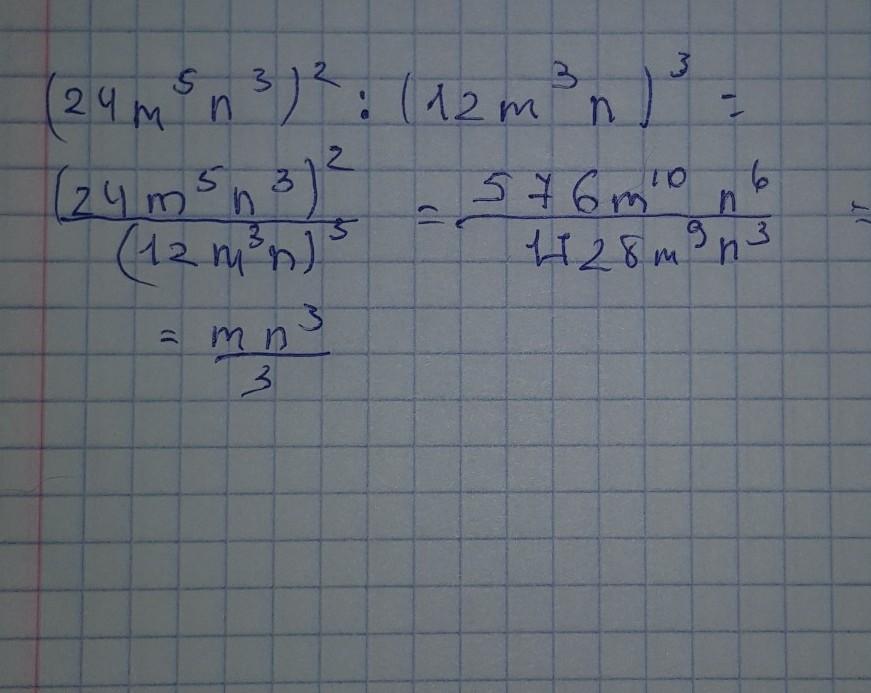 (24m⁵n³)² : (12m³n)³ =
(24m⁵n³)²/(12m³n)³ = 576m¹⁰n⁶/1728m⁹n³ =
= mn³/3